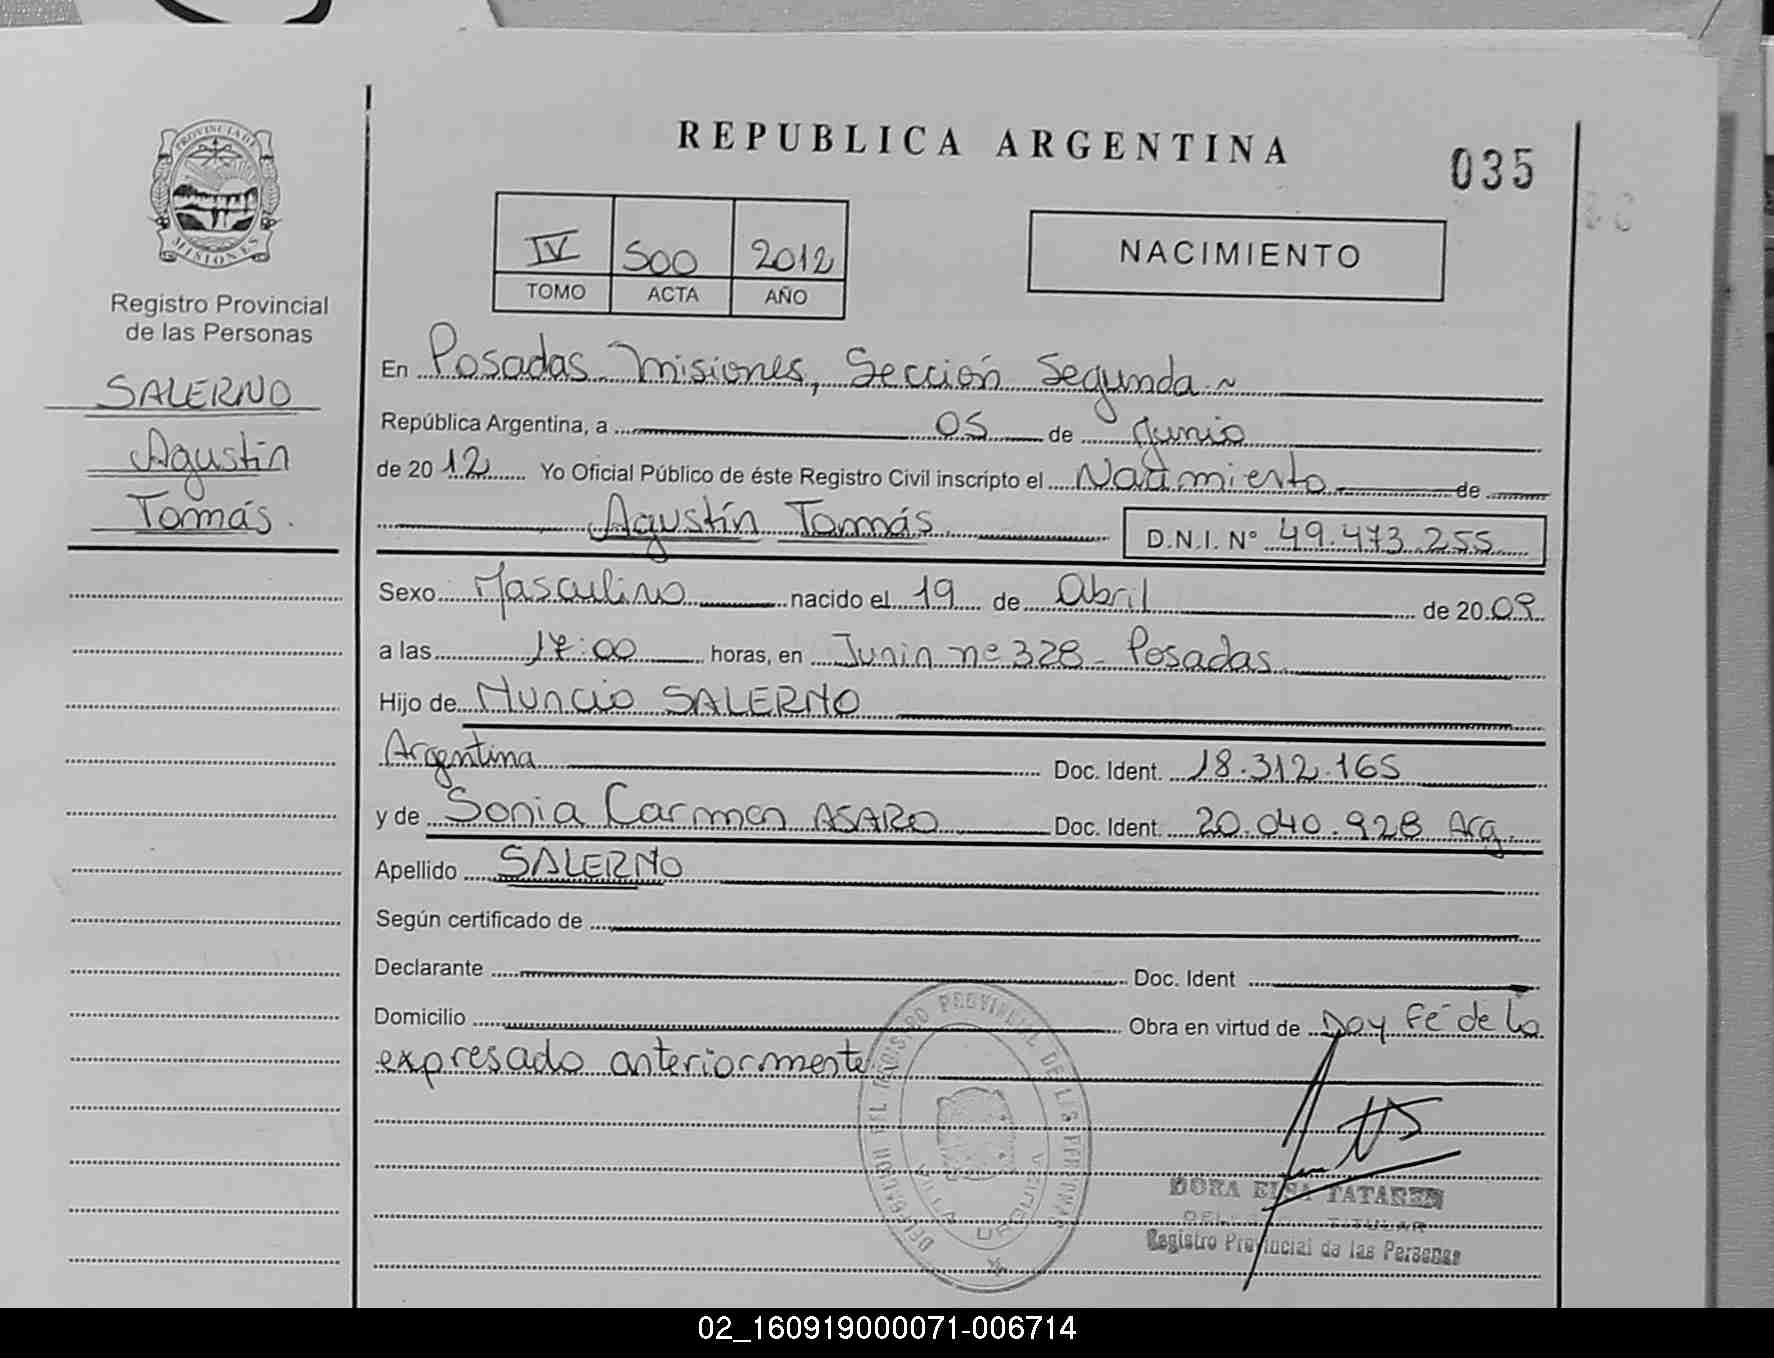 REPUBLICA ARGENTINA
035
PROVINCIA DE
MISIONES
Registro Provincial
de las Personas
SALERNO
Agustín
Tomás.
IV 500 2012
TOMO ACTA AÑO
NACIMIENTO
En Posadas Misiones, Sección Segunda ~
República Argentina, a 05 de Junio
de 2012 Yo Oficial Público de éste Registro Civil inscripto el Nacimiento de
Agustín Tomás D.N.I. N° 49.473.255
Sexo Masculino nacido el 19 de Abril de 2009
a las 17:00 horas, en Junin nº 328 - Posadas
Hijo de Nuncio SALERNO
Argentina Doc. Ident. 18.312.165
y de Sonia Carmen ASARO Doc. Ident. 20.040.928 Arg.
Apellido SALERNO
Según certificado de
Declarante Doc. Ident
Domicilio Obra en virtud de Doy Fé de lo
expresado anteriormente
DELEGACION DEL REGISTRO PROVINCIAL DE LAS PERSONAS
VILLA URQUIZA
DORA ELSA
TITULAR
Registro Provincial de las Personas
02_160919000071-006714